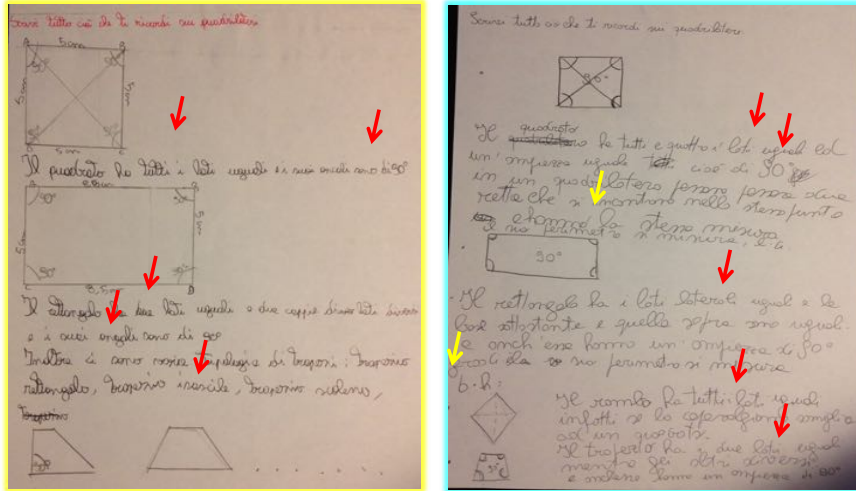 Scrivi tutto ciò che ti ricordi sui quadrilateri
5cm
A B
90° 90°
5cm 5cm
5cm
Il quadrato ha tutti i lati uguali e i suoi angoli sono di 90°
8,5cm
90°
5cm 5cm
90°
C 8,5cm D
Il rettangolo ha due lati uguali e due coppie di lati diversi
e i suoi angoli sono di 90°
Inoltre ci sono varie tipologie di trapezi: trapezio
rettangolo, trapezio isoscile, trapezio scaleno,
90°
Scrivi tutto ciò che ti ricordi sui quadrilateri.
90°
Il quadrato ha tutti e quattro i lati uguali ed
un'ampiezza uguale cioè di 90°
in un quadrilatero possono passare due
rette che si incontrano nello stesso punto
e hanno la stessa misura
Il suo perimetro si misura
90°
Il rettangolo ha i lati laterali uguali e la
base sottostante e quella sopra sono uguali.
e anch'esso hanno un'ampiezza di 90°
suo perimetro si misura
b·h:
Il rombo ha tutti i lati uguali
infatti se lo capovolgiamo somiglia
ad un quadrato.
Il trapezio ha i due lati uguali
mentre gli altri diversi
e anch'esso hanno un'ampiezza di 90°